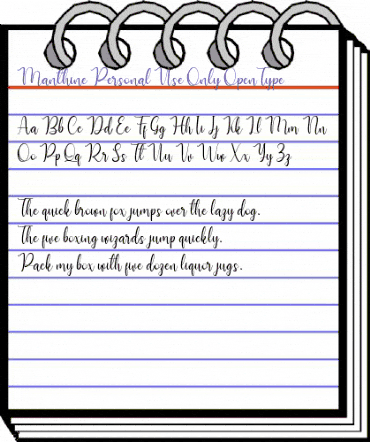 Manthine Personal Use Only OpenType
Aa Bb Cc Dd Ee Ff Gg Hh Ii Jj Kk Ll Mm Nn
Oo Pp Qq Rr Ss Tt Uu Vv Ww Xx Yy Zz
The quick brown fox jumps over the lazy dog.
The five boxing wizards jump quickly.
Pack my box with five dozen liquor jugs.